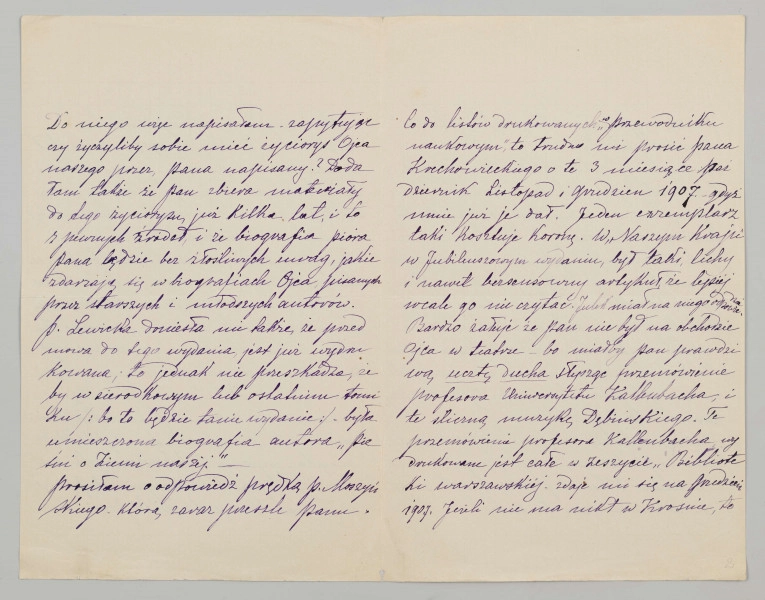 Do niego więc napisałam - zapytując
czy życzyliby sobie mieć życiorys Ojca
naszego przez pana napisany? Doda
łam także że pan zbiera materiały
do tego życiorysu, już kilka lat, i to
z pewnych źródeł, i że biografia pióra
pana będzie bez złośliwych uwag, jakie
zdarzają się w biografiach Ojca pisanych
przez starszych i młodszych autorów.
p. Lewicka doniosła mi także, że przed
mowa do tego wydania jest już wydru
kowana; to jednak nie przeszkadza, że
by w sierodkowym lub ostatnim tomi
ku /: bo to będzie tanie wydanie :/ - była
umieszczona biografia autora „Pie
śni o Ziemi naszej." —
Prosiłam o odpowiedź prędką p. Moszyń
skiego - którą zaraz prześlę Panu.
Co do listów drukowanych w „Przewodniku
naukowym" to trudno mi prosić pana
Krechowieckiego o te 3 miesiące Paź
dziernik Listopad i Grudzień 1907 - gdyż
mnie już je dał. Jeden exemplarz
taki kosztuje Koronę. W „Naszym Kraju"
w Jubileuszowym wydaniu, był taki lichy
i nawet bezsensowny artykuł że lepiej
wcale go nie czytać.
Bardzo żałuję że pan nie był na obchodzie
Ojca w teatrze - bo miałby pan prawdzi
wą ucztę ducha słysząc przemówienie
profesora Uniwersytetu Kallenbacha, i
te śliczną muzykę Dębińskiego. Te
przemówienie profesora Kallenbacha, wy
drukowane jest całe w zeszycie „Bibliote
ki warszawskiej - zdaje mi się na Grudzień
1907. Jeżeli nie ma nikt w Krośnie, to